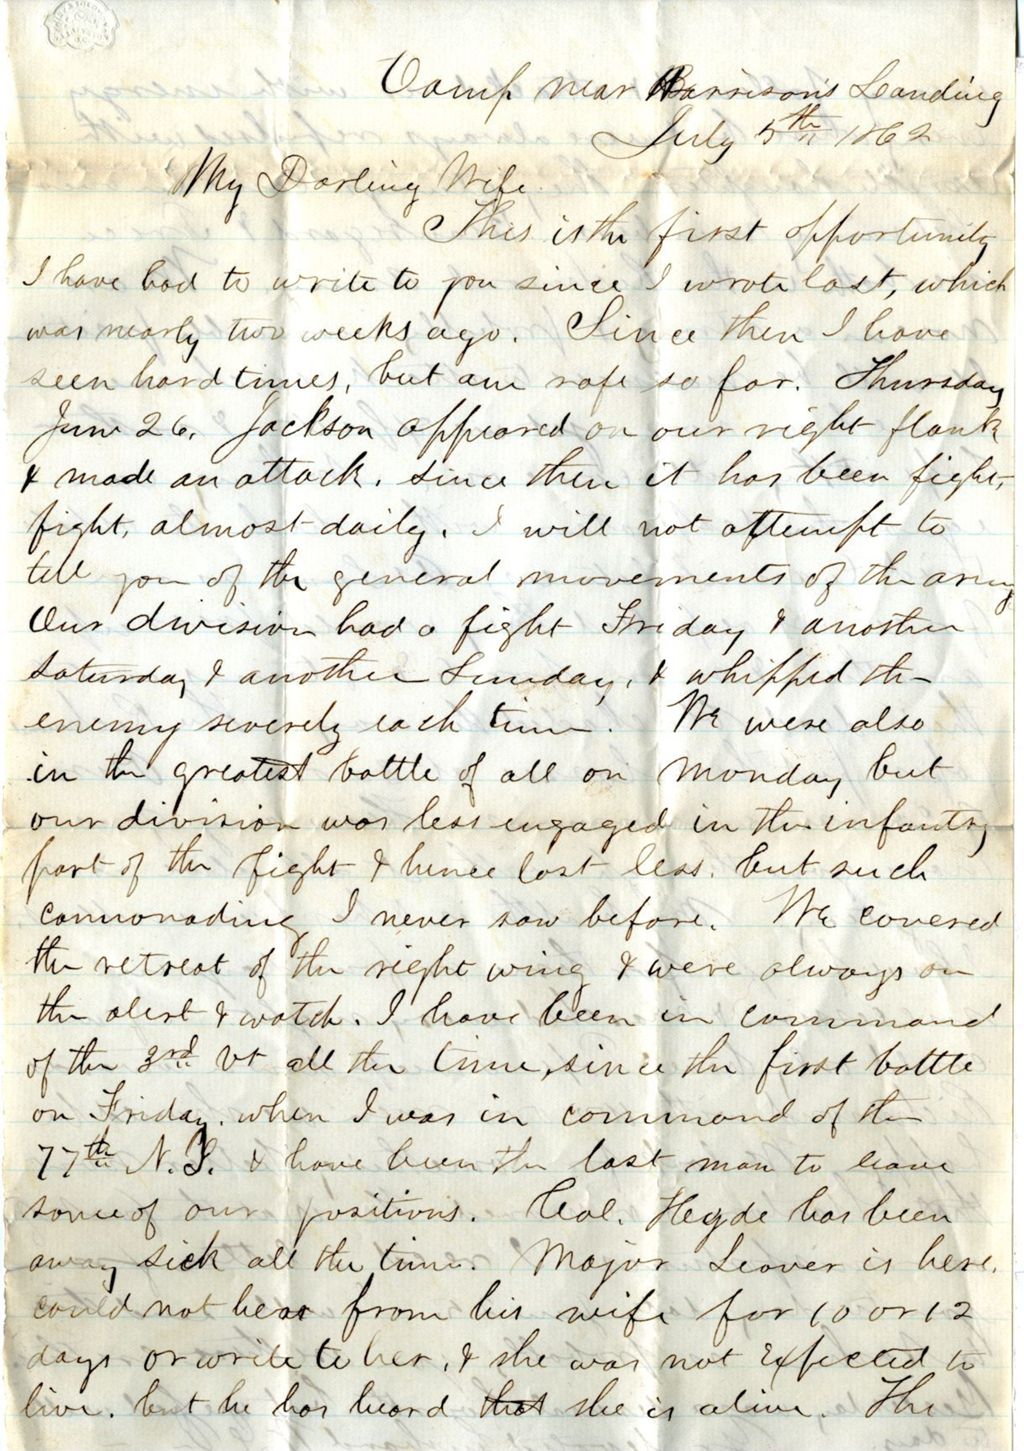 Camp near Harrison's Landing
July 5th 1862
My Darling Wife
This is the first opportunity
I have had to write to you since I wrote last, which
was nearly two weeks ago. Since then I have
seen hard times, but am safe so far. Thursday
June 26, Jackson appeared on our right flank
& made an attack, since then it has been fight,
fight, almost daily. I will not attempt to
tell you of the general movements of the army
Our division had a fight Friday & another
Saturday & another Sunday, & whipped the
enemy severely each time. We were also
in the greatest battle of all on Monday but
our division was less engaged in the infantry
part of the fight & hence lost less, but such
cannonading I never saw before. We covered
the retreat of the right wing & were always on
the alert & watch. I have been in command
of the 3rd Vt all the time, since the first battle
on Friday, when I was in command of the
77th N.Y. & have been the last man to leave
some of our positions. Col. Hyde has been
away sick all the time. Major Seaver is here,
could not hear from his wife for 10 or 12
days or write to her, & she was not expected to
live, but he has heard that she is alive. The